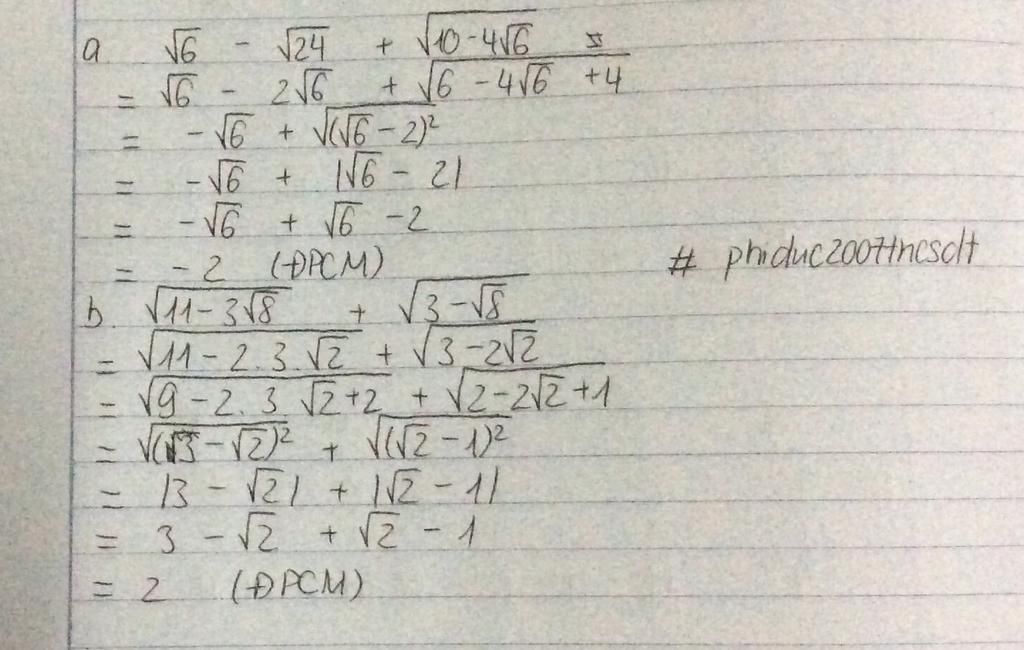 a √6 - √24 + √(10-4√6)
= √6 - 2√6 + √(6 - 4√6 + 4)
= -√6 + √((√6 - 2)²)
= -√6 + |√6 - 2|
= -√6 + √6 - 2
= -2 (ĐPCM)
# phiduc2007tncsdt
b. √(11-3√8) + √(3-√8)
= √(11-2.3.√2) + √(3-2√2)
= √(9-2.3 √2+2) + √(2-2√2+1)
= √((3-√2)²) + √((√2-1)²)
= |3 - √2| + |√2 - 1|
= 3 - √2 + √2 - 1
= 2 (ĐPCM)